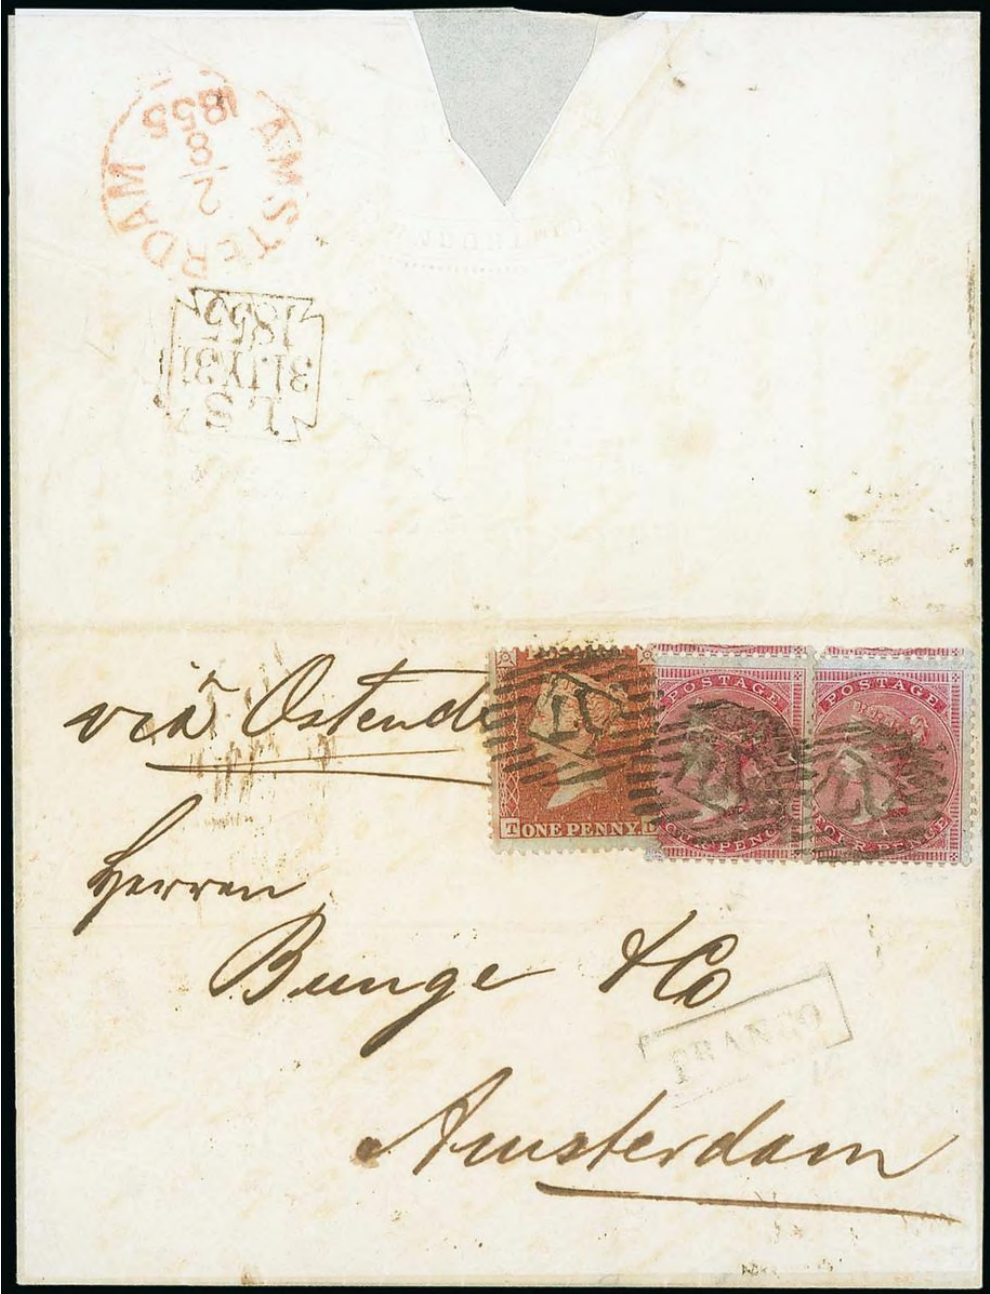 AMSTERDAM
2/8
1855
LS
31JY31
1855
via Ostende
T ONE PENNY
POSTAGE
FOUR PENCE
POSTAGE
FOUR PENCE
Herren
Bunge & Co
FRANCO
Amsterdam